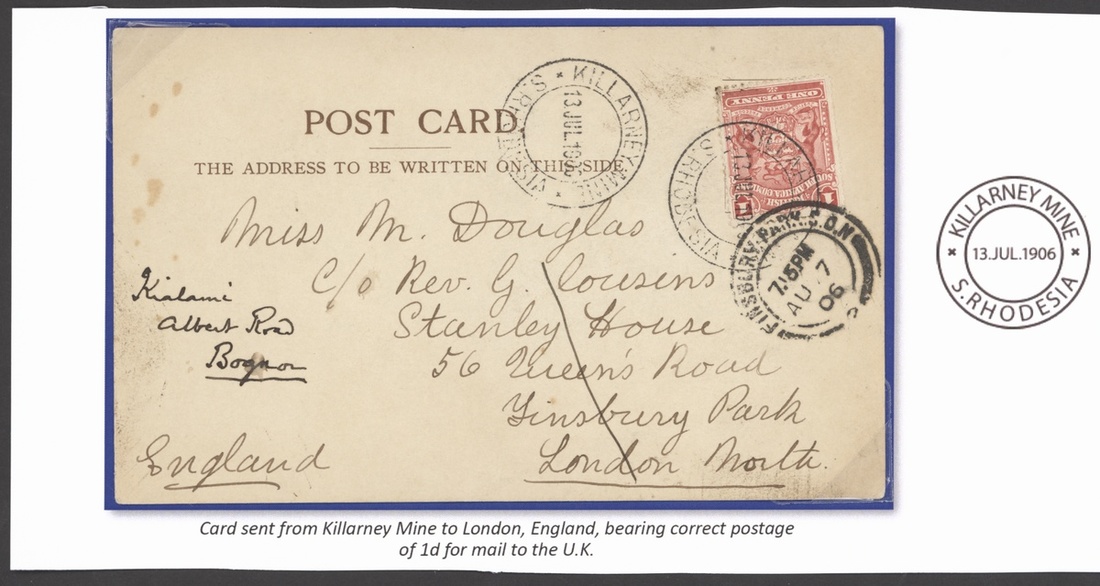 POST CARD
THE ADDRESS TO BE WRITTEN ON THIS SIDE
KILLARNEY MINE
13 JUL 1906
S.RHO
ONE PENNY
SOUTH AFRICA COMPANY
1d
KILLAR
S.RHODES
FINSBURY PARK S.O.N
7.15PM
AU 7
06
Miss M. Douglas
c/o Rev. G. Cousins
Stanley House
56 Queen's Road
Finsbury Park
London North.
England
Kialami
Albert Road
Bognor
KILLARNEY MINE
13.JUL.1906
S.RHODESIA
Card sent from Killarney Mine to London, England, bearing correct postage
of 1d for mail to the U.K.